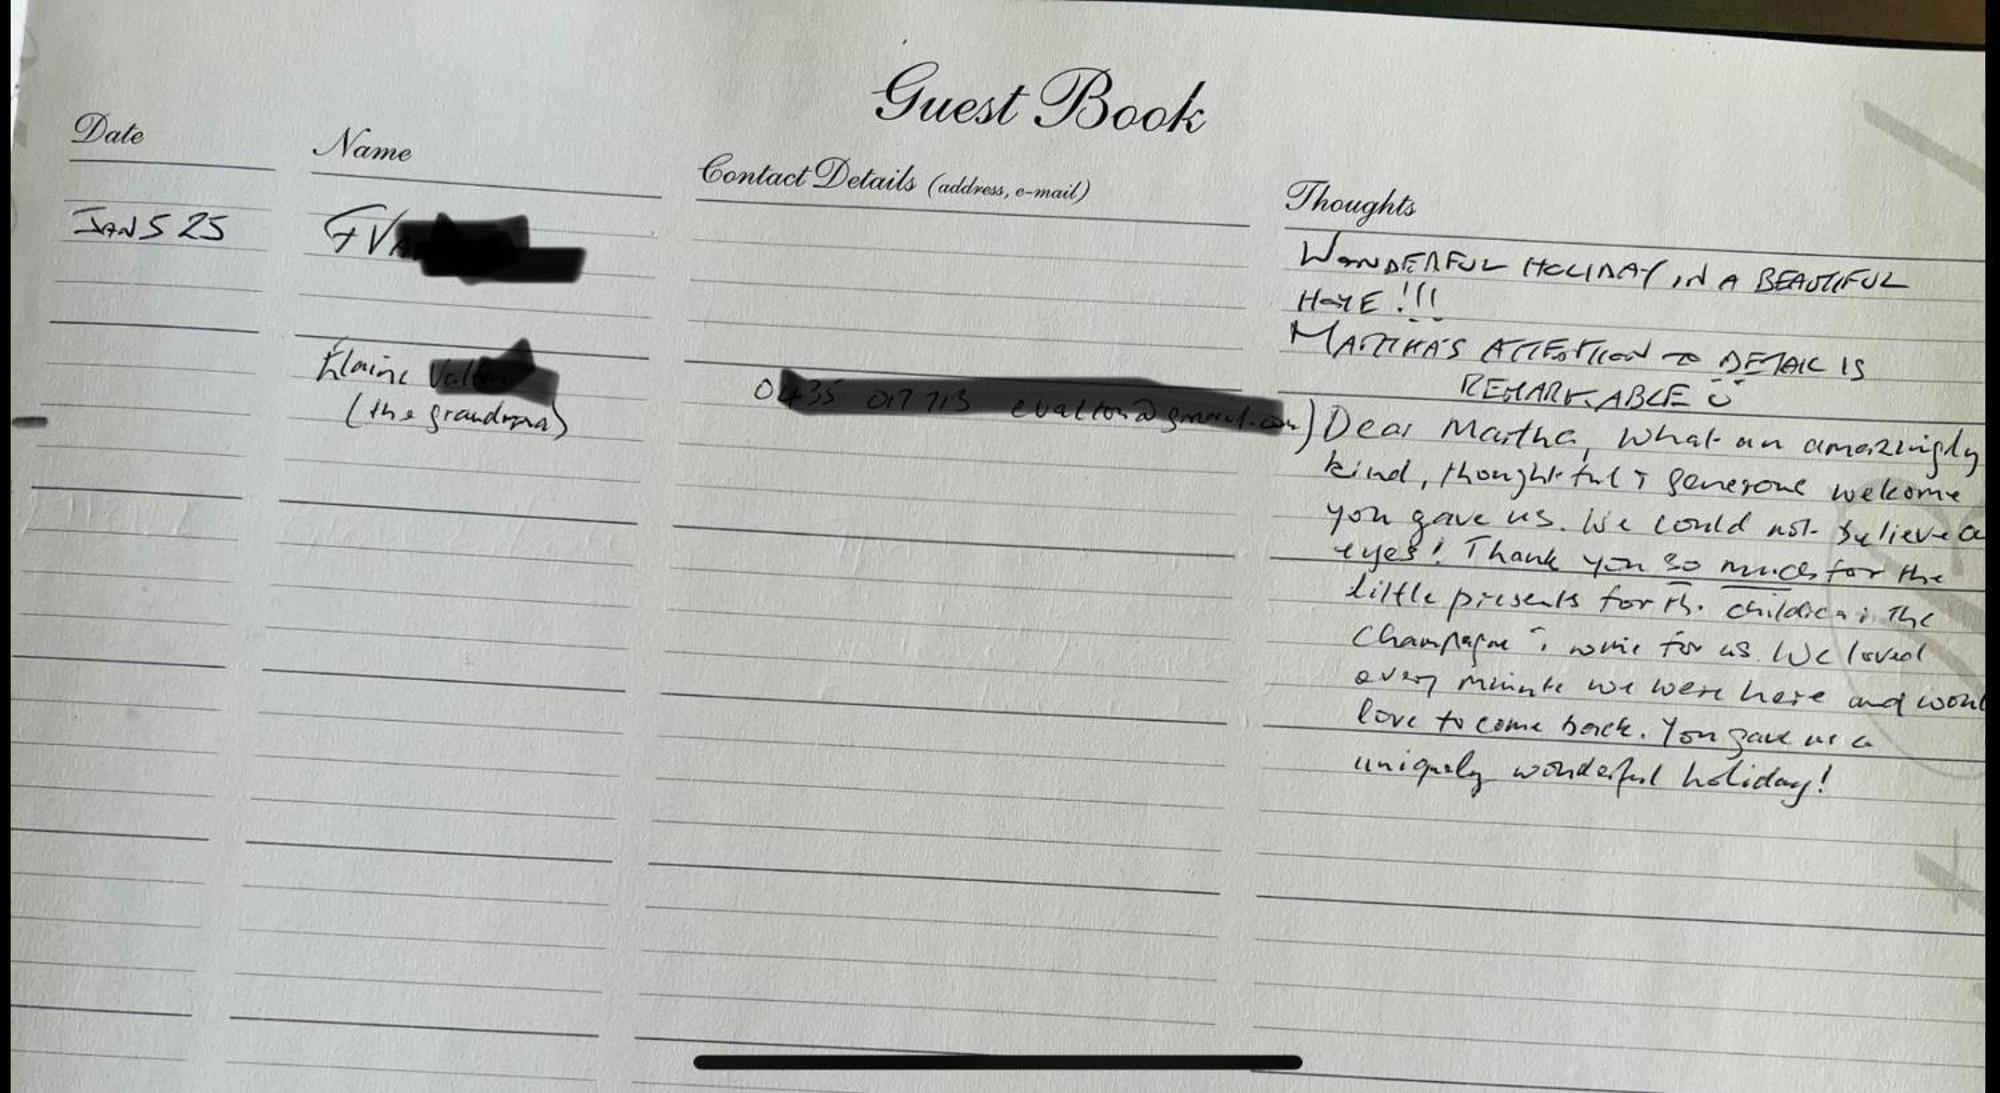 Guest Book
Date
Name
Contact Details (address, e-mail)
Thoughts
JAN 5 25
WONDERFUL HOLIDAY IN A BEAUTIFUL
HOME !!!
MARTHA'S ATTENTION TO DETAIL IS
REMARKABLE
Elaine
(the grandma)
Dear Martha, What an amazingly
kind, thoughtful & generous welcome
you gave us. We could not believe
eyes! Thank you so much for the
little presents for the children & the
Champagne & wine for us. We loved
every minute we were here and
love to come back. You gave us a
uniquely wonderful holiday!